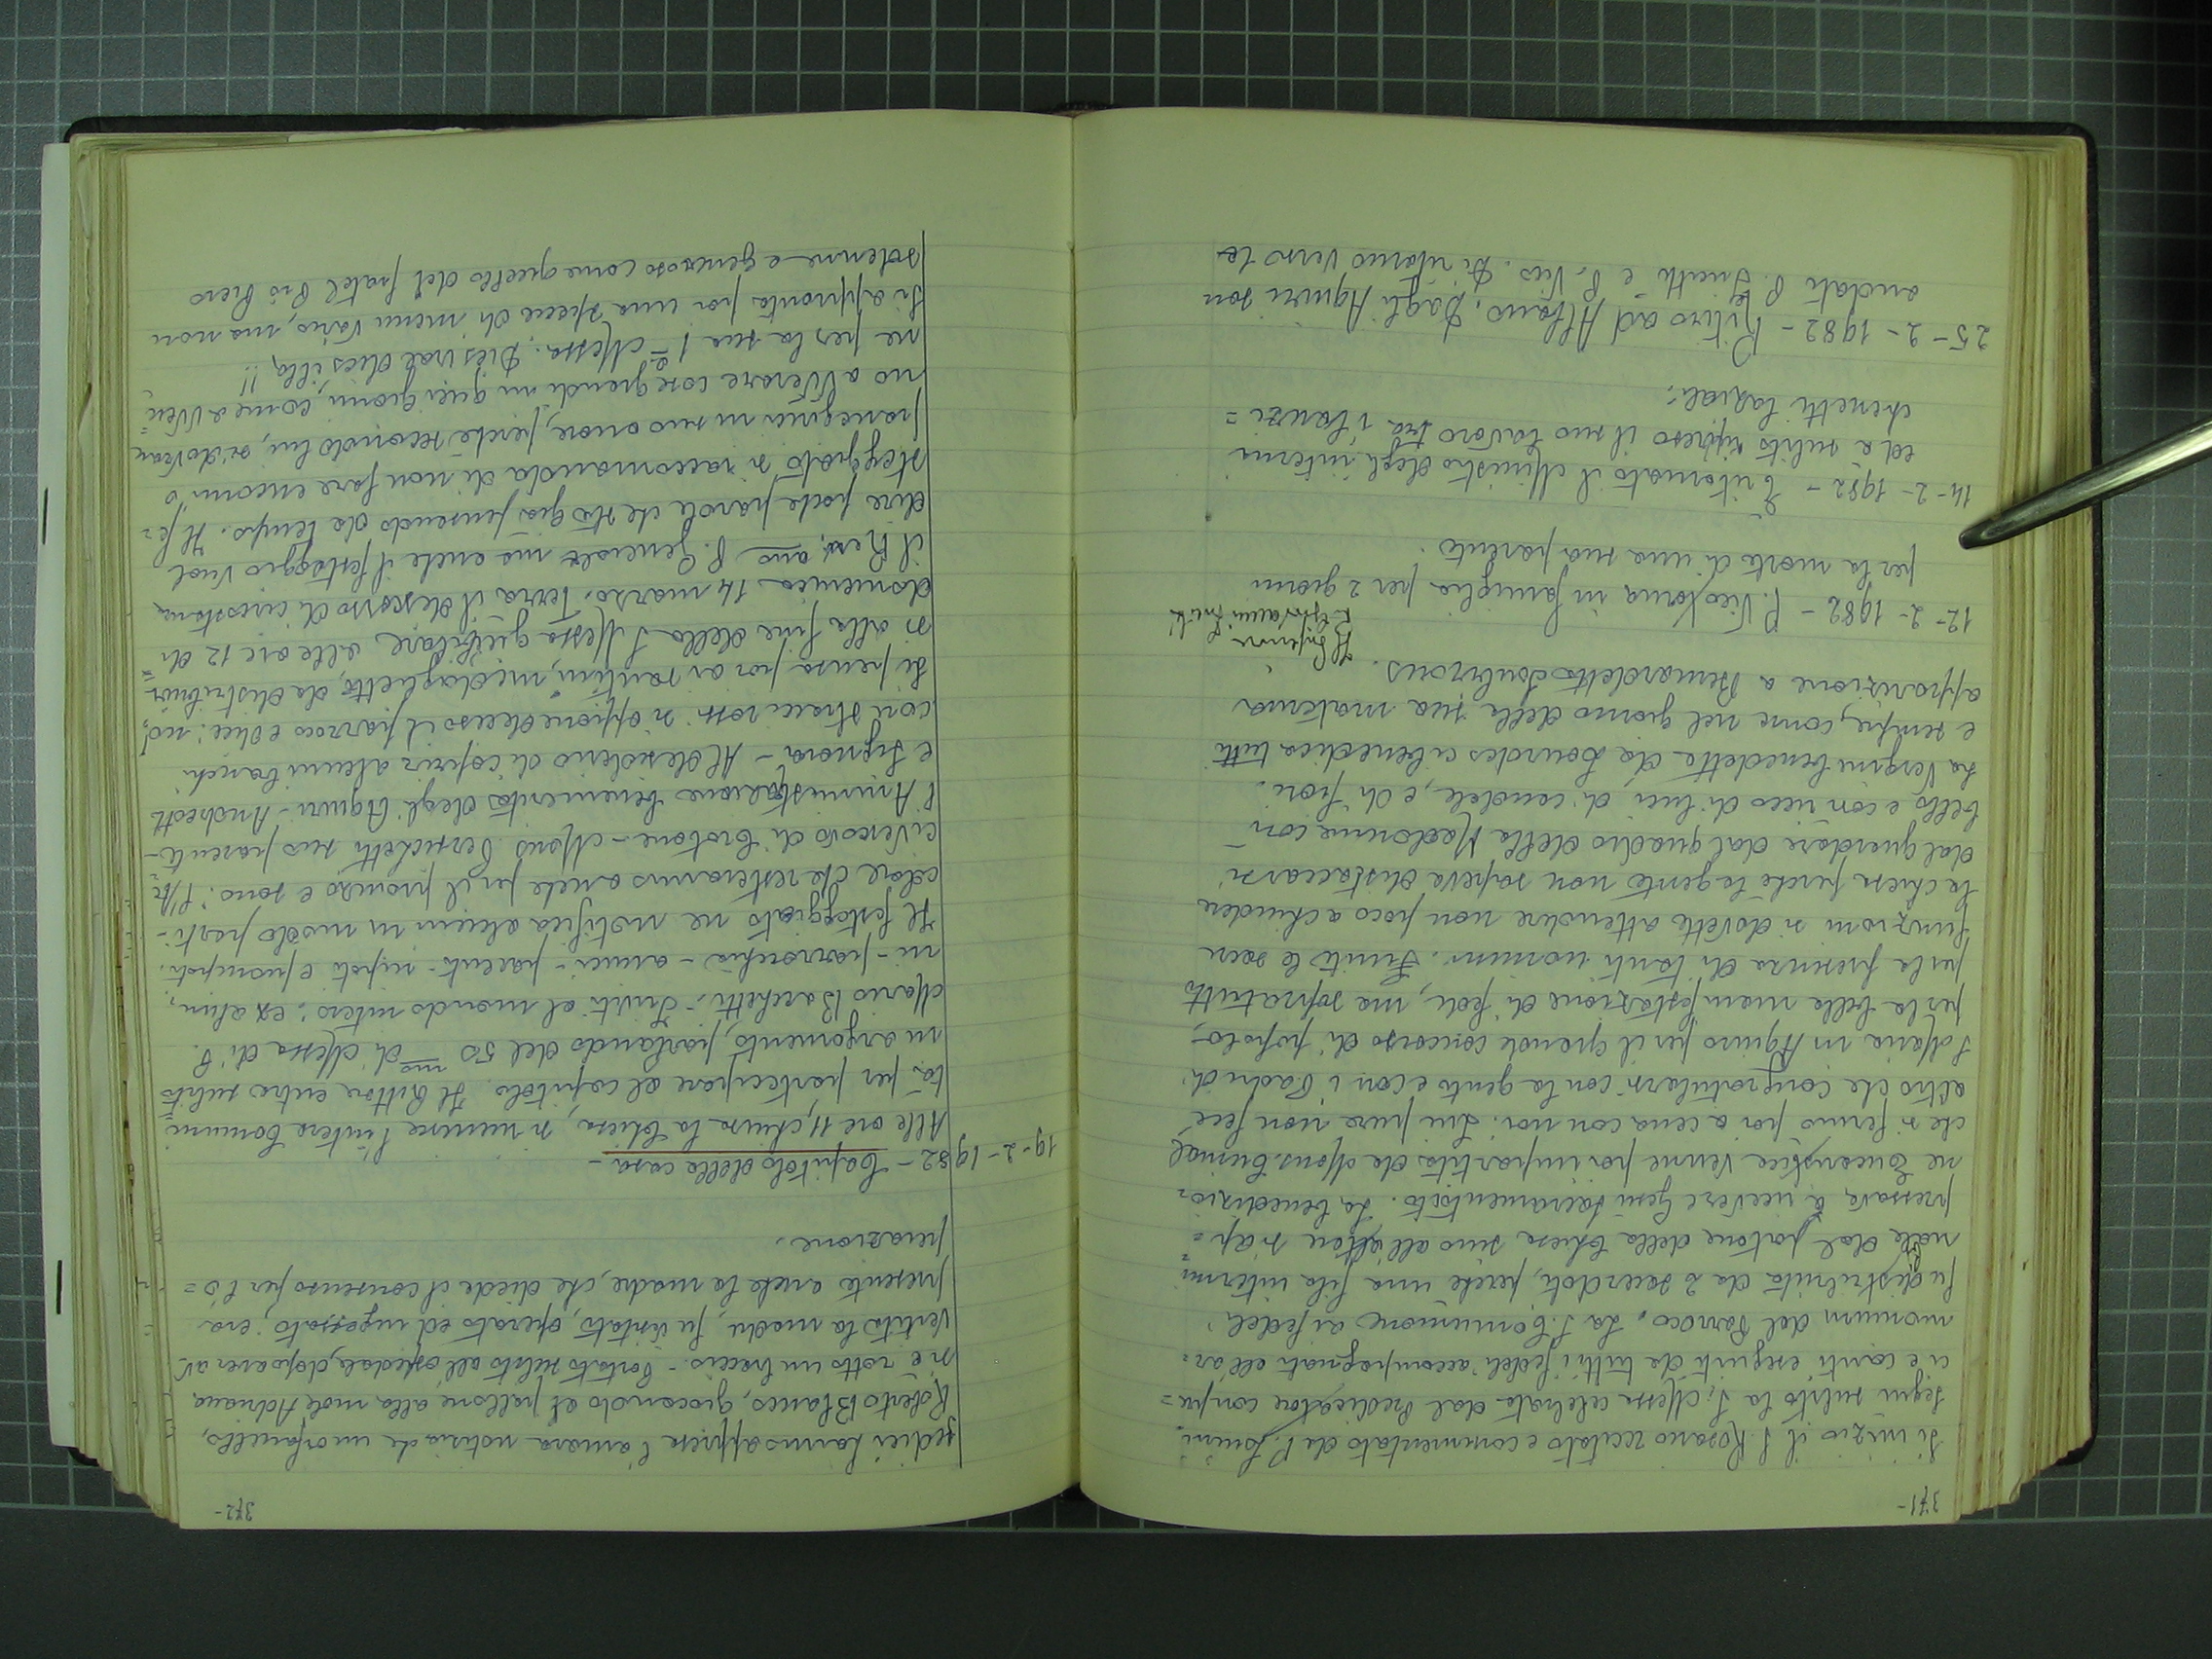 371-
Si iniziò il S. Rosario recitato e commentato da P. Simini.
Seguì subito la S. Messa celebrata dal Predicatore con pa=
ci e canti eseguiti da tutti i fedeli accompagnati all'ar=
monium dal Parroco. La S. Comunione ai fedeli,
fu distribuita da 2 sacerdoti, perchè una fila intermi=
nabile dal portone della Chiesa sino all'altare s'ap=
pressava a ricevere Gesù Sacramentato. La benedizio=
ne Eucaristica venne poi impartita da Mons.
che si fermò poi a cena con noi. Lui pure non fece
altro che congratularsi con la gente e con i Padri di
S. Maria in Aquiro per il grande concorso di popolo,
per la bella manifestazione di fede, ma sopratutto
per la presenza di tanti uomini. Finite le sacre
funzioni si dovette attendere non poco a chiudere
la chiesa perchè la gente non sapeva distaccarsi
dal guardare dal quadro della Madonna con
bello e con ricco di luci, di candele, e di fiori.
La Vergine benedetta da Lourdes ci benedica tutti
e sempre, come nel giorno della sua materna
apparizione a Bernardetta Soubirous.
12-2-1982 - P. Vico torna in famiglia per 2 giorni
per la morte di una sua parente.
14-2-1982 - È ritornato il Ministro degli interni
ed a subito ripreso il suo lavoro tra i
chinetti laziali.
25-2-1982 - Ritiro ad Albano. Dagli Aquiri son
andati P. e P. Vico. Di ritorno verso le
372-
sedici hanno appreso l'amara notizia che un orfanello,
Roberto Blanco, giocando al pallone alla mole Adriana,
si è rotto un braccio - Portato subito all'ospedale, dopo aver av
vertito la madre, fu visitato, operato ed ingessato; era
presente anche la madre, che diede il consenso per l'o=
perazione.
19-2-1982 - Capitolo della casa -
Alle ore 11, chiusa la Chiesa, si riunisce l'intera Comuni=
tà per partecipare al capitolo. Il Rettore entra subito
in argomento, parlando del 50mo di Messa di P.
Mario Bacchetti - Inviti al mondo intero: ex alun,
ni - parrocchia - amici - parenti - nipoti e pronipoti.
Il festeggiato ne notifica alcuni in modo parti-
colare che resteranno anche per il pranzo e sono: l'Ar
civescovo di Crotone - Mons. suo parente -
l'Amministrazione benemerita degli Aquiri - Andreotti
e Signora - Al desiderio di coprir alcuni banchi
con stracci rossi si oppone deciso il parroco e dice: no,
Si pensa poi ai santini, medagliette da distribuir
si alla fine della S. Messa giubilare, alle ore 12 di
domenica 14 marzo. Terrà il discorso di circostanza
il Rev.mo P. Generale ma anche il festeggio vuol
dire poche parole che sta già pensando da tempo. Il fe=
steggiato si raccomanda di non fare encomi o
panegirici in suo onore, perchè secondo lui, si dovran
no avverare cose grandi in quei giorni, come avven=
ne per la sua 1ª Messa. Dies irae dies illa!!
Si appronta poi una specie di menù vario, ma non
solenne e generoso come quello del fratel Pio Piero